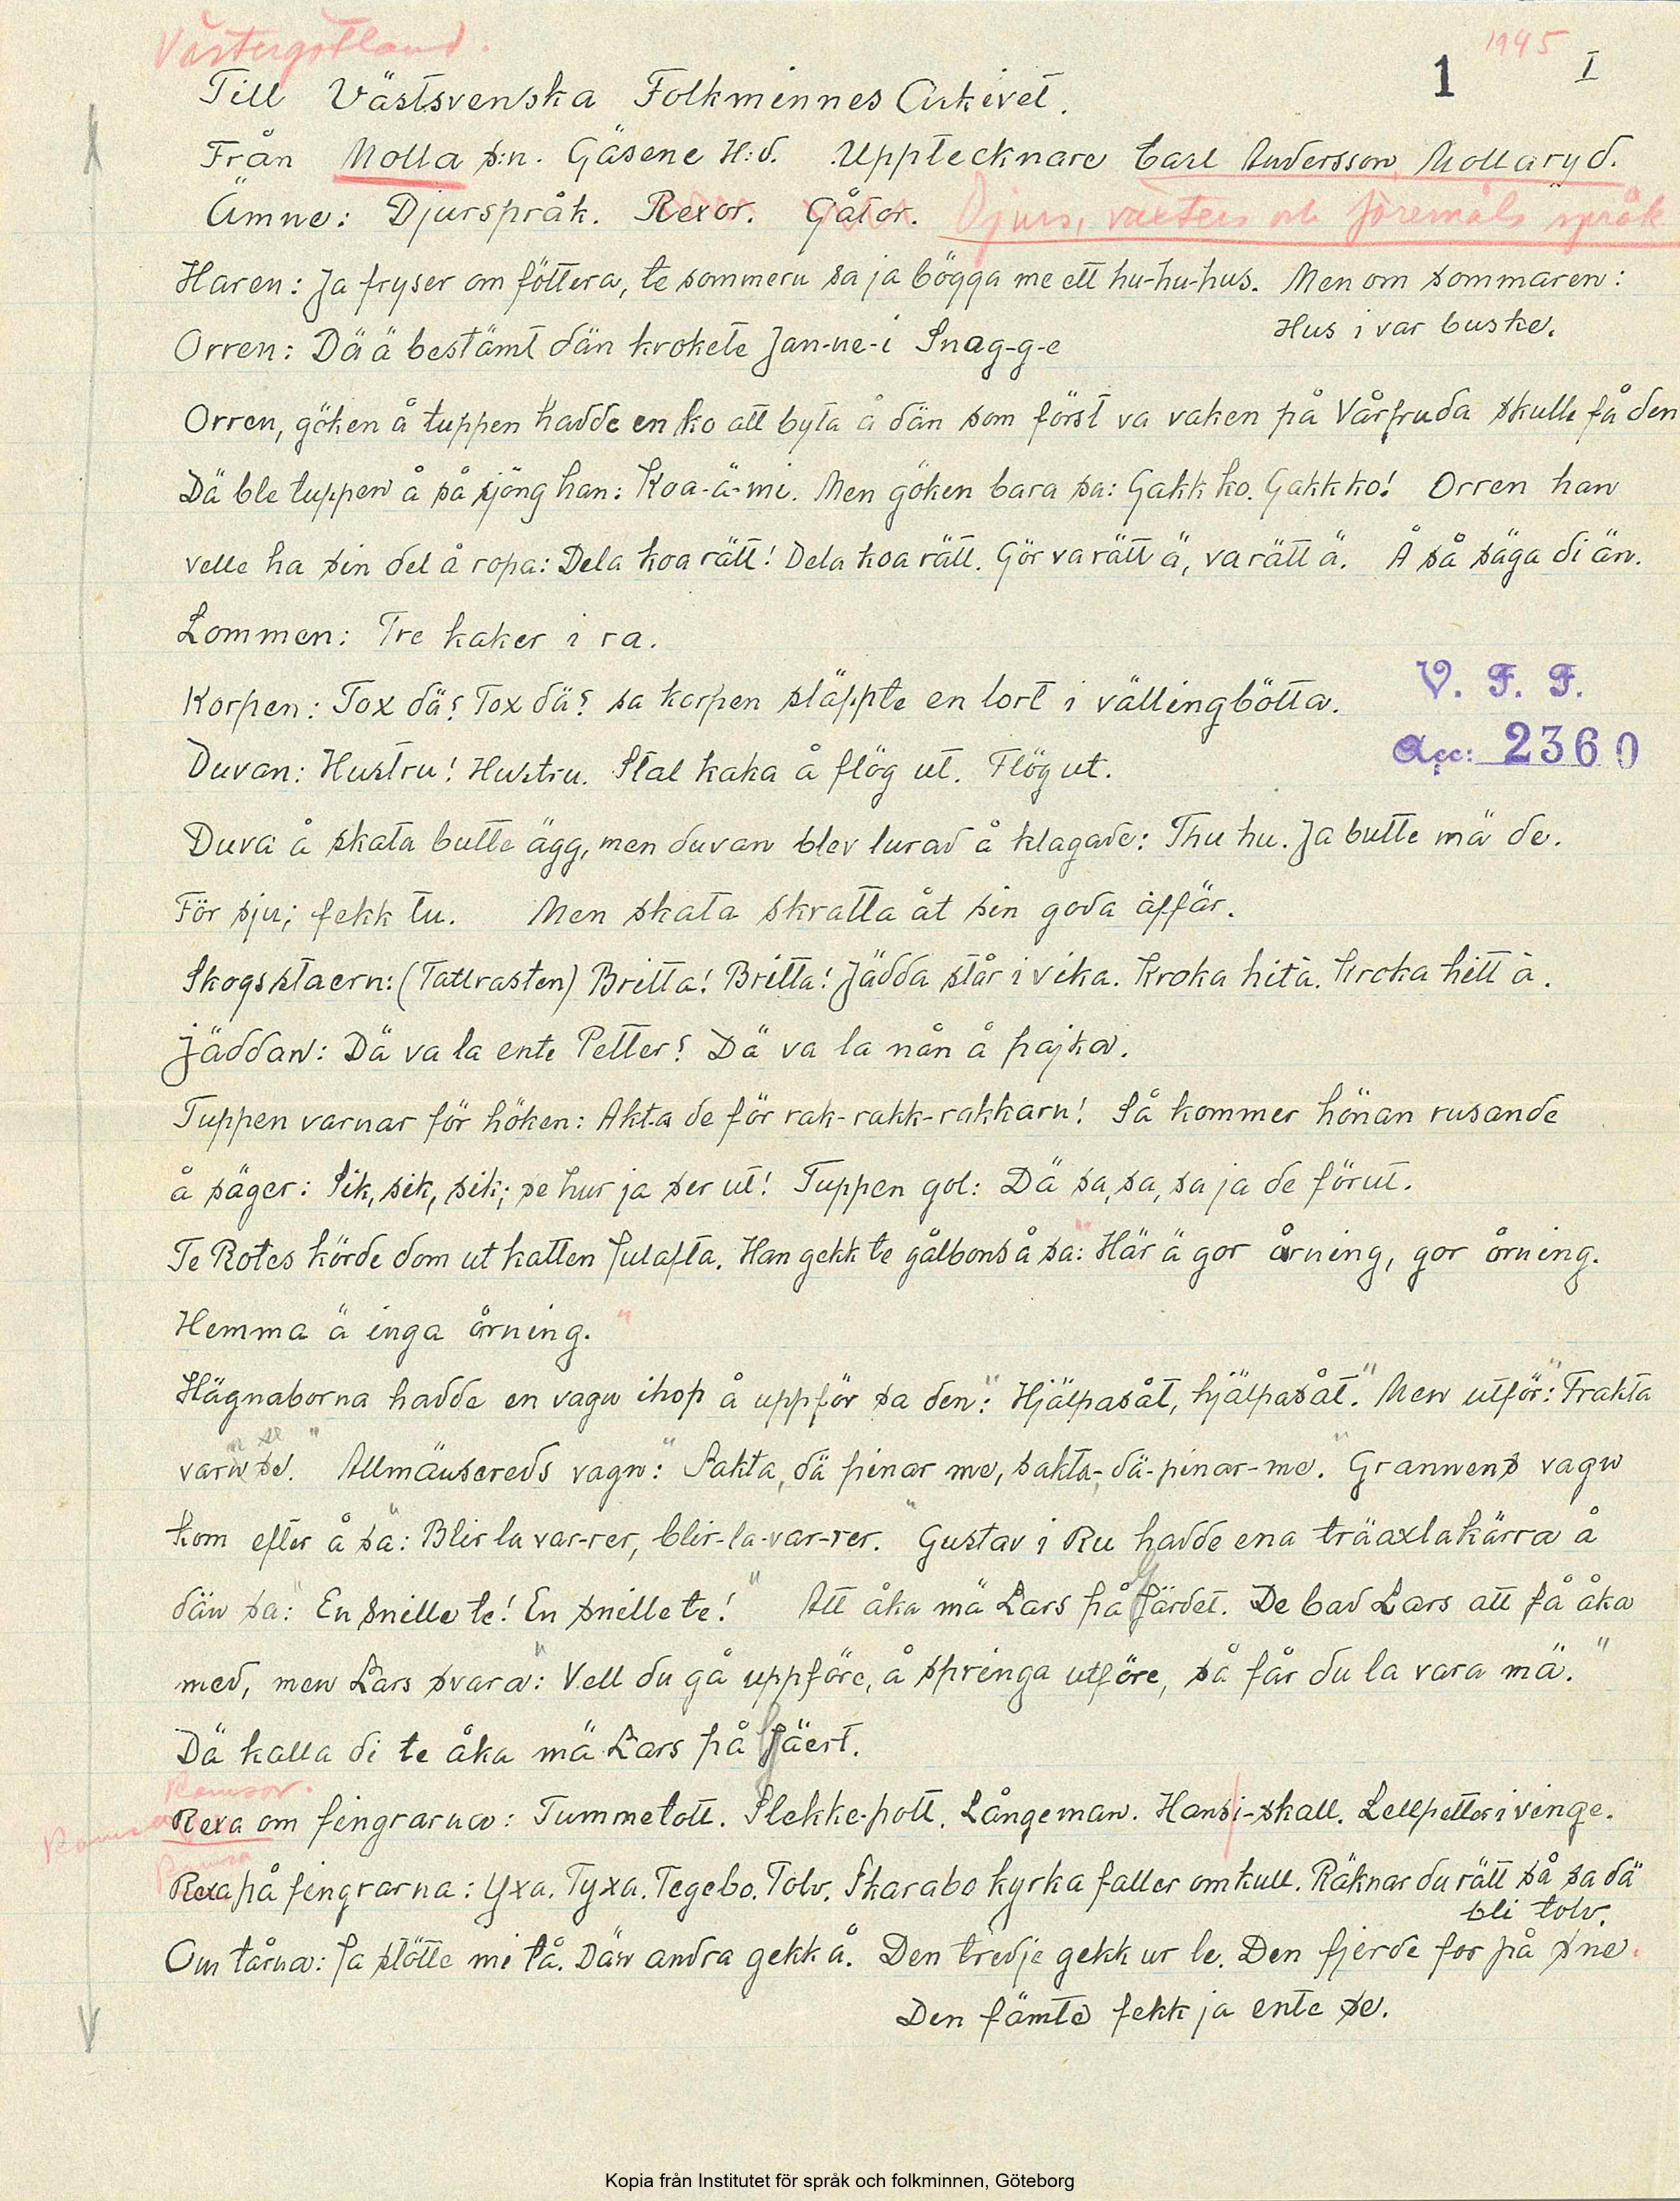 Västergötland.
1945
1 I
Till Västsvenska Folkminnes Arkivet.
Från Molla s:n. Gäsene H:d. Upptecknare Carl Andersson, Mollaryd.
Ämne: Djurspråk. Rexor. Gåtor. Djurs, växters och föremåls språk
Haren: Ja fryser om föttera, te sommern sa ja bögga me ett hu-hu-hus. Men om sommaren:
Hus i var buske.
Orren: Dä ä bestämt dän krokete Jan-ne-i Snag-g-e
Orren, göken å tuppen hadde en ko att byta å dän som först va vaken på Vårfruda skulle få den
Dä ble tuppen å så sjöng han: Koa-ä-mi. Men göken bara sa: Gakk ko. Gakk ko! Orren han
velle ha sin del å ropa: Dela koa rätt! Dela koa rätt. Gör va rätt ä, va rätt ä. Å så säga di än.
Lommen: Tre kaker i ra.
V. F. F.
Korpen: Tox dä? Tox dä? sa korpen släppte en lort i vällingbötta.
Acc: 2360
Duvan: Hustru! Hustru. Stal kaka å flög ut. Flög ut.
Duva å skata butte ägg, men duvan blev lurad å klagade: Thu hu. Ja butte mä de.
För sju; fekk tu. Men skata skratta åt sin goda affär.
Skogsstaern: (Tattrasten) Britta! Britta! Jädda står i vika. Kroka hita. Kroka hitt a.
Jäddan: Dä va la ente Petter? Dä va la nån å pajka.
Tuppen varnar för höken: Akta de för rak-rakk-rakkarn! Så kommer hönan rusande
å säger: Sik, sik, sik; se hur ja ser ut! Tuppen gol: Dä sa, sa, sa ja de förut.
Te Rotes körde dom ut katten Julafta. Han gekk te gålbons å sa: "Här ä gor årning, gor årning.
Hemma ä inga årning."
Hägnaborna hadde en vagn ihop å uppför sa den: "Hjälpasåt, hjälpasåt." Men utför: "Frakta
varn se." Allmänsereds vagn: "Sakta, dä pinar me, sakta-dä-pinar-me." Grannens vagn
kom efter å sa: "Blir la var-rer, blir-la-var-rer." Gustav i Ru hadde ena träaxlakärra å
dän sa: "En snille te! En snille te!" Att åka mä Lars på Gärdet. De bad Lars att få åka
med, men Lars svara: "Vell du gå uppföre, å springa utföre, så får du la vara mä."
Dä kalla di te åka mä Lars på Gäert.
Ramsor.
Ramsa Rexa om fingrarna: Tummetott. Slekke-pott. Långeman. Hans i-skall. Lellpetter i vinge.
Ramsa
Rexa på fingrarna: Yxa. Tyxa. Tegebo. Tolv. Skarabo kyrka faller omkull. Räknar du rätt så sa dä
bli tolv.
Om tårna: Ja stötte mi tå. Dän andra gekk å. Den tredje gekk ur le. Den fjerde for på sne.
Den fämte fekk ja ente se.
Kopia från Institutet för språk och folkminnen, Göteborg